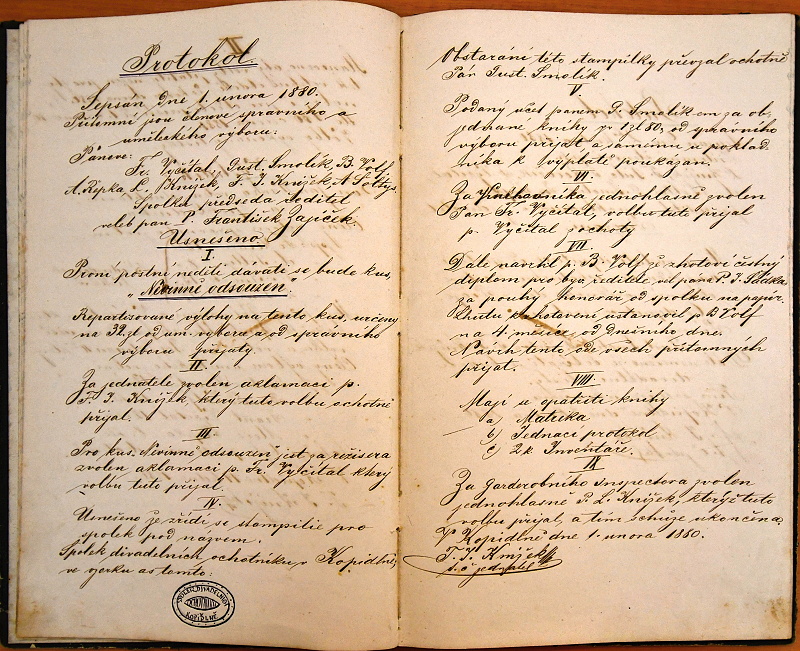 Protokol.
Sepsán dne 1. února 1880.
Přítomní jsou členové správního a
uměleckého výboru:
Pánové:
Fr. Vyčítal, Gust. Smolík, B. Volf,
A. Řepka, L. Knížek, F. J. Knížek, A. Šoltys,
Spolku předseda ředitel
veleb. pan P. František Zajíček.
Usnešeno
I.
První postní neděli dávati se bude kus,
"Nevinně odsouzen".
Repartizované výlohy na tento kus, určeny
na 32 zl od um. výboru a od správního
výboru přijaty.
II.
Za jednatele zvolen aklamací p.
F. J. Knížek, který tuto volbu ochotně
přijal.
III.
Pro kus "Nevinně odsouzen" jest za režiséra
zvolen aklamací p. Fr. Vyčítal který
volbu tuto přijal.
IV.
Usnešeno že zřídí se stampilie pro
spolek pod názvem.
Spolek divadelních ochotníků v Kopidlně,
ve vzorku as tomto:
SPOLEK DIVADELNÍCH
KOPIDLNĚ
Obstarání této stampilky převzal ochotně
Pán Gust. Smolík.
V
Podaný účet panem G. Smolíkem za ob-
jednané knihy pr 1 zl 50, od správního
výboru přijat a samému u poklad-
níka k výplatě poukázán.
VI.
Za Knihovníka jednohlasně zvolen
Pán Fr. Vyčítal, volbu tuto přijal
p. Vyčítal s ochoty
VII.
Dále navrhl p. B. Volf že zhotoví čestný
diplom pro býv. ředitele, vel. pána P. J. Sádka
za pouhý honorář od spolku na papír.
Lhůtu ku hotovení ustanovil p. B Volf
na 4. měsíce od Dnešního dne.
Návrh tento ode všech přítomných
přijat.
VIII
Mají se opatřiti knihy
a) Matrika
b) Jednací protokol
c) 2 k Inventáře.
IX
Za Garderobního inspectora zvolen
jednohlasně P. L. Knížek, kterýž tuto
volbu přijal, a tím schůze ukončena,
V Kopidlně dne 1. února 1880.
F. J. Knížek
t. č. jednatel